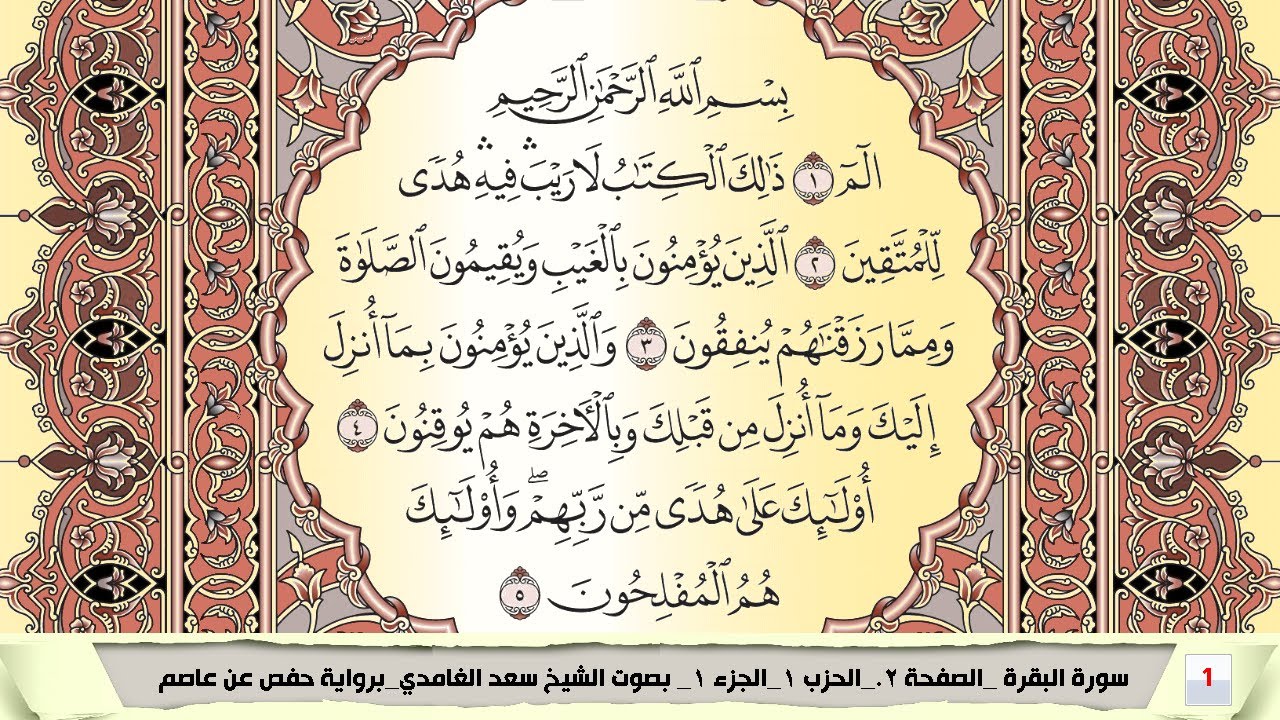 بِسْمِ ٱللَّهِ ٱلرَّحْمَٰنِ ٱلرَّحِيمِ
الٓمٓ ١ ذَٰلِكَ ٱلْكِتَٰبُ لَا رَيْبَ ۛ فِيهِ ۛ هُدًى
لِّلْمُتَّقِينَ ٢ ٱلَّذِينَ يُؤْمِنُونَ بِٱلْغَيْبِ وَيُقِيمُونَ ٱلصَّلَوٰةَ
وَمِمَّا رَزَقْنَٰهُمْ يُنفِقُونَ ٣ وَٱلَّذِينَ يُؤْمِنُونَ بِمَآ أُنزِلَ
إِلَيْكَ وَمَآ أُنزِلَ مِن قَبْلِكَ وَبِٱلْءَاخِرَةِ هُمْ يُوقِنُونَ ٤
أُو۟لَٰٓئِكَ عَلَىٰ هُدًى مِّن رَّبِّهِمْ ۖ وَأُو۟لَٰٓئِكَ
هُمُ ٱلْمُفْلِحُونَ ٥
1 سورة البقرة _الصفحة ٢._الحزب ١_الجزء ١_ بصوت الشيخ سعد الغامدي_برواية حفص عن عاصم